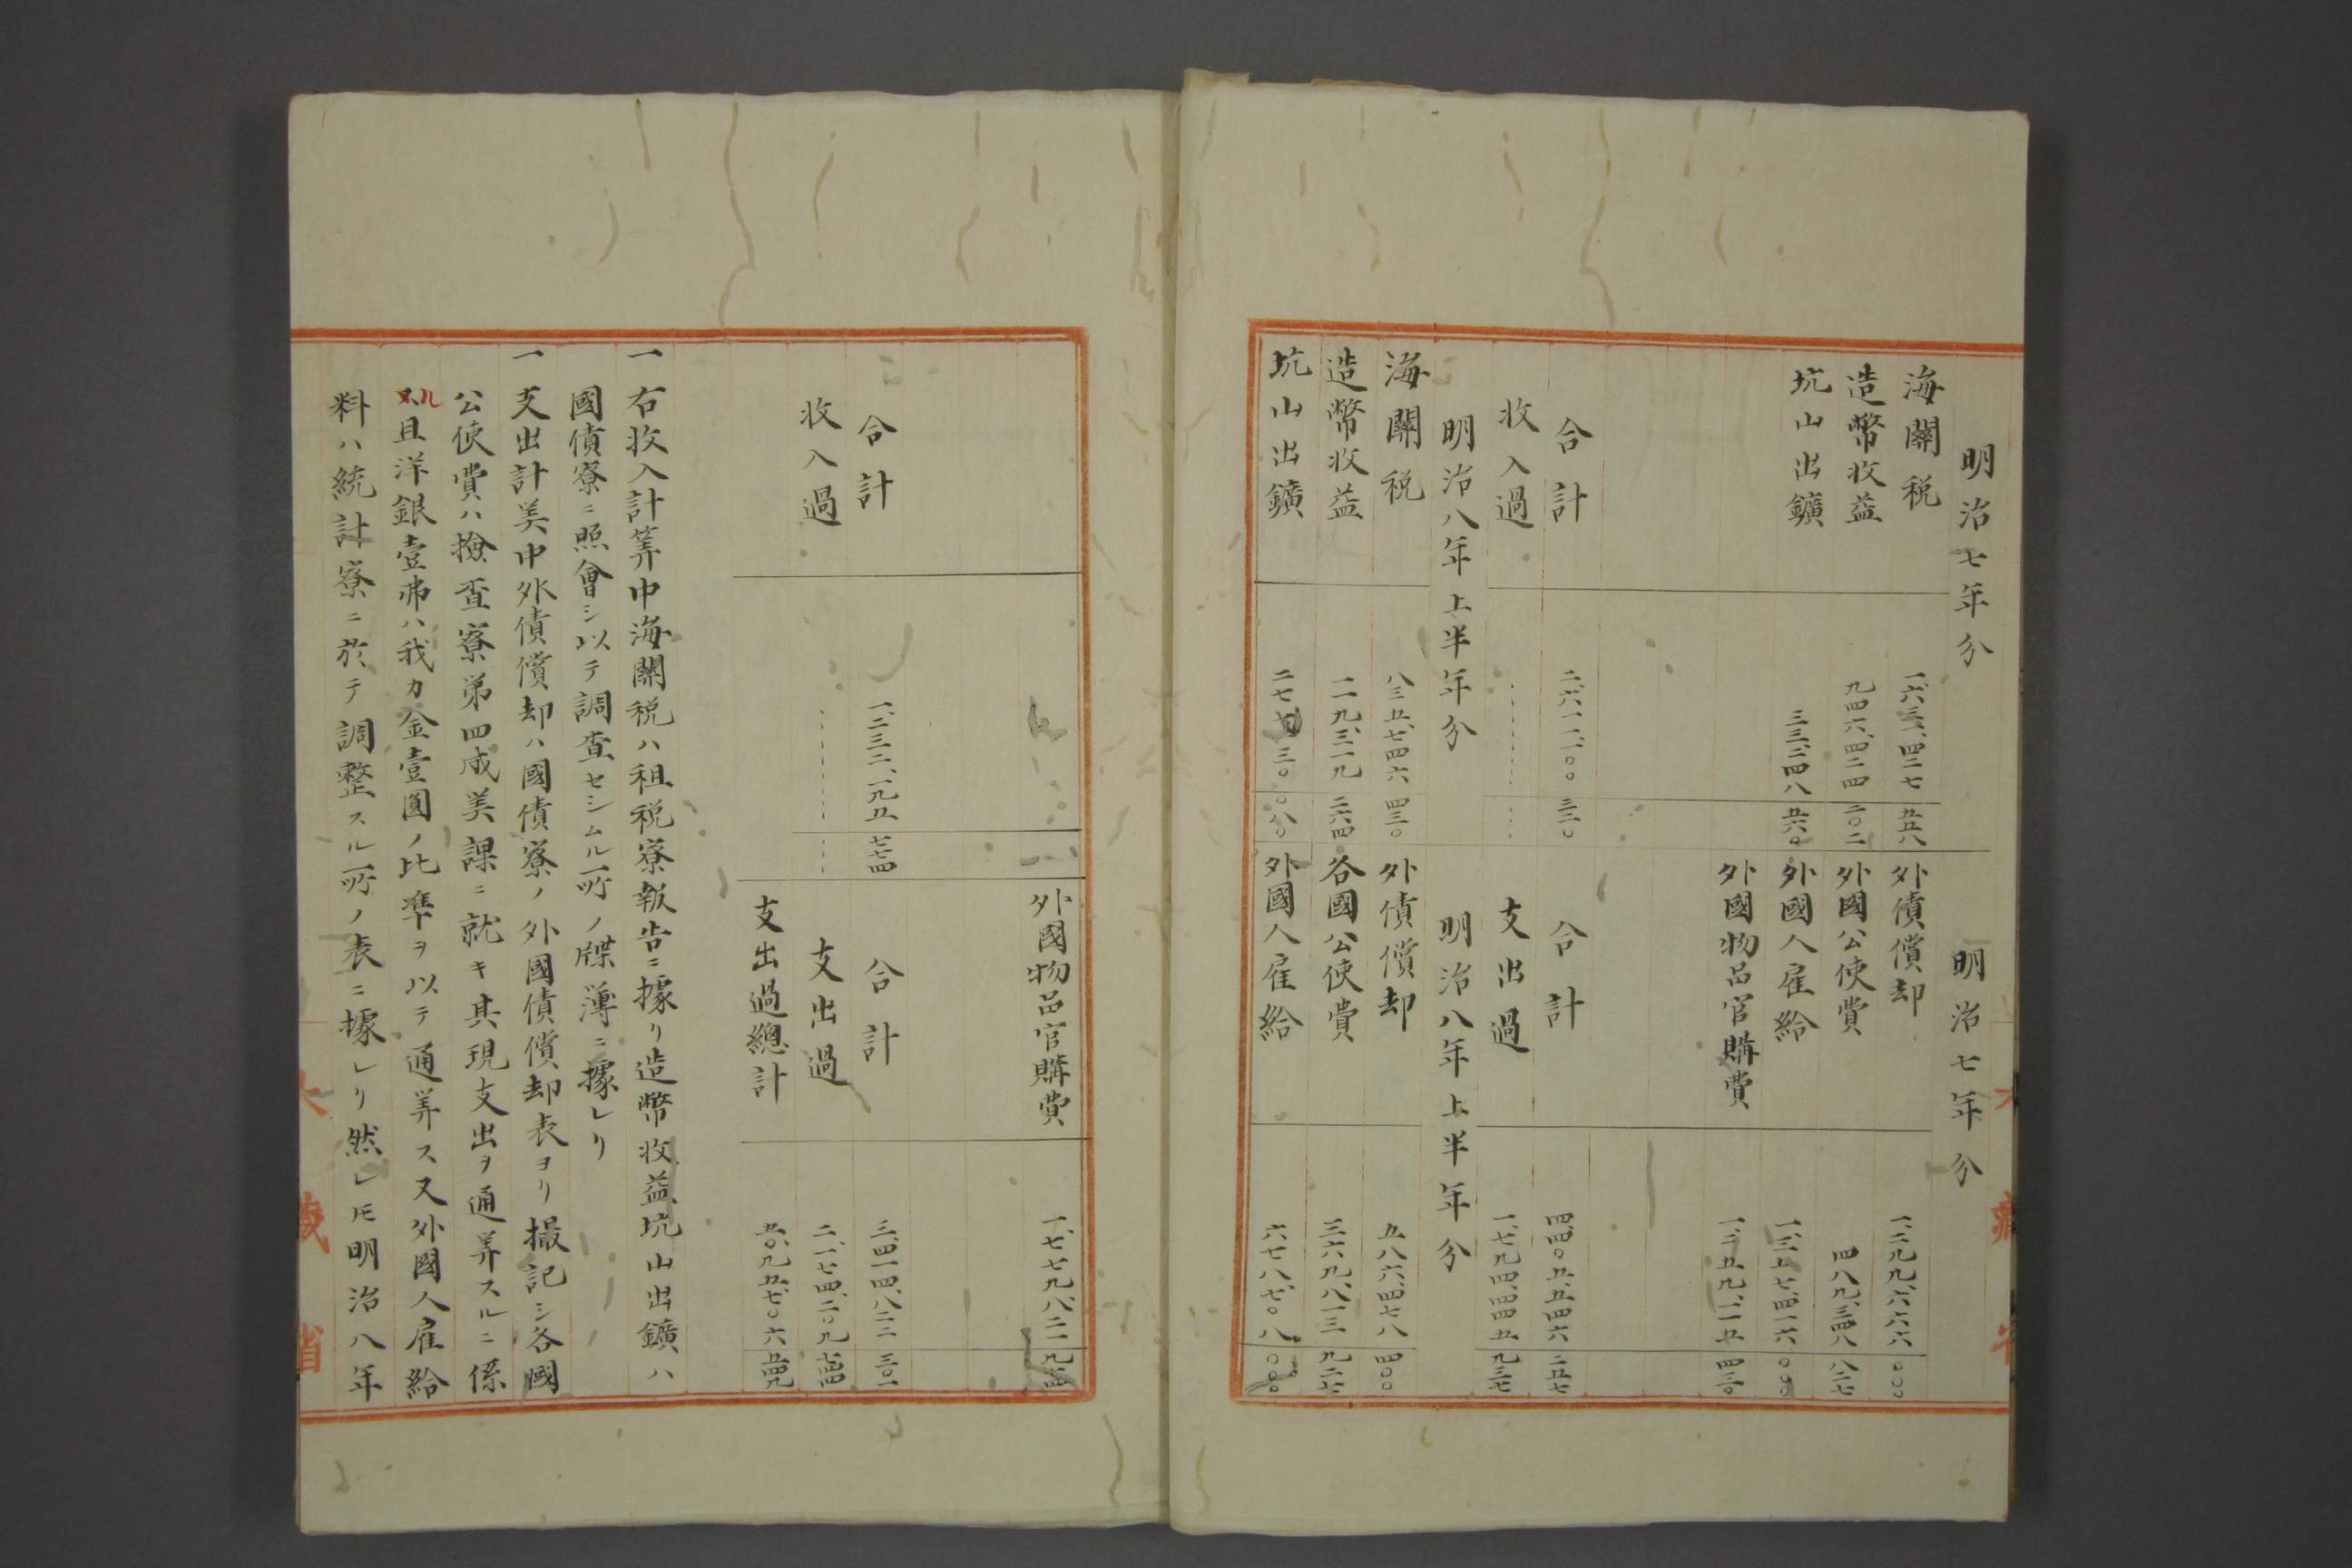 明治七年分 明治七年分
海關税 一、六三一、四二七 五五八 外債償却 一、二九九、六六六 〇〇〇
造幣收益 九四六、四二四 二〇二 外國公使費 四八九、三四八 八二七
坑山出鑛 三三、二四八 五六〇 外國人雇給 一、三五七、四一六 〇〇〇
外國物品官購費 一、二五九、一一五 四三〇
合計 二、六一一、一〇〇 三二〇 合計 四、四〇五、五四六 二五七
收入過 支出過 一、七九四、四四五 九三七
明治八年上半年分 明治八年上半年分
海關税 八三五、七四六 四三〇 外債償却 五八六、四七八 四〇〇
造幣收益 一一九、三一九 二六四 各國公使費 三六九、八一三 九二七
坑山出鑛 二七七、一三〇 〇八〇 外國人雇給 六七八、七〇八 〇〇〇
外國物品官購費 一、七七九、八二一 九七四
合計 一、二三二、一九五 七七四 合計 三、四一四、八二二 三〇一
收入過 支出過 二、一七四、二〇九 七四四
支出過總計 五〇、九五七、〇六 五四九
一右收入計筭中海關税ハ租税寮報告ニ據リ造幣收益坑山出鑛ハ
國債寮ニ照會シ以テ調査セシムル所ノ牒簿ニ據レリ
一支出計筭中外債償却ハ國債寮ノ外國債償却表ヨリ撮記シ各國
公使費ハ撿査寮第四成筭課ニ就キ其現支出ヲ通筭スルニ係
ル且洋銀壹弗ハ我カ金壹圓ノ比準ヲ以テ通筭ス又外國人雇給
料ハ統計寮ニ於テ調整スル所ノ表ニ據レリ然レ𪜈明治八年
大藏省